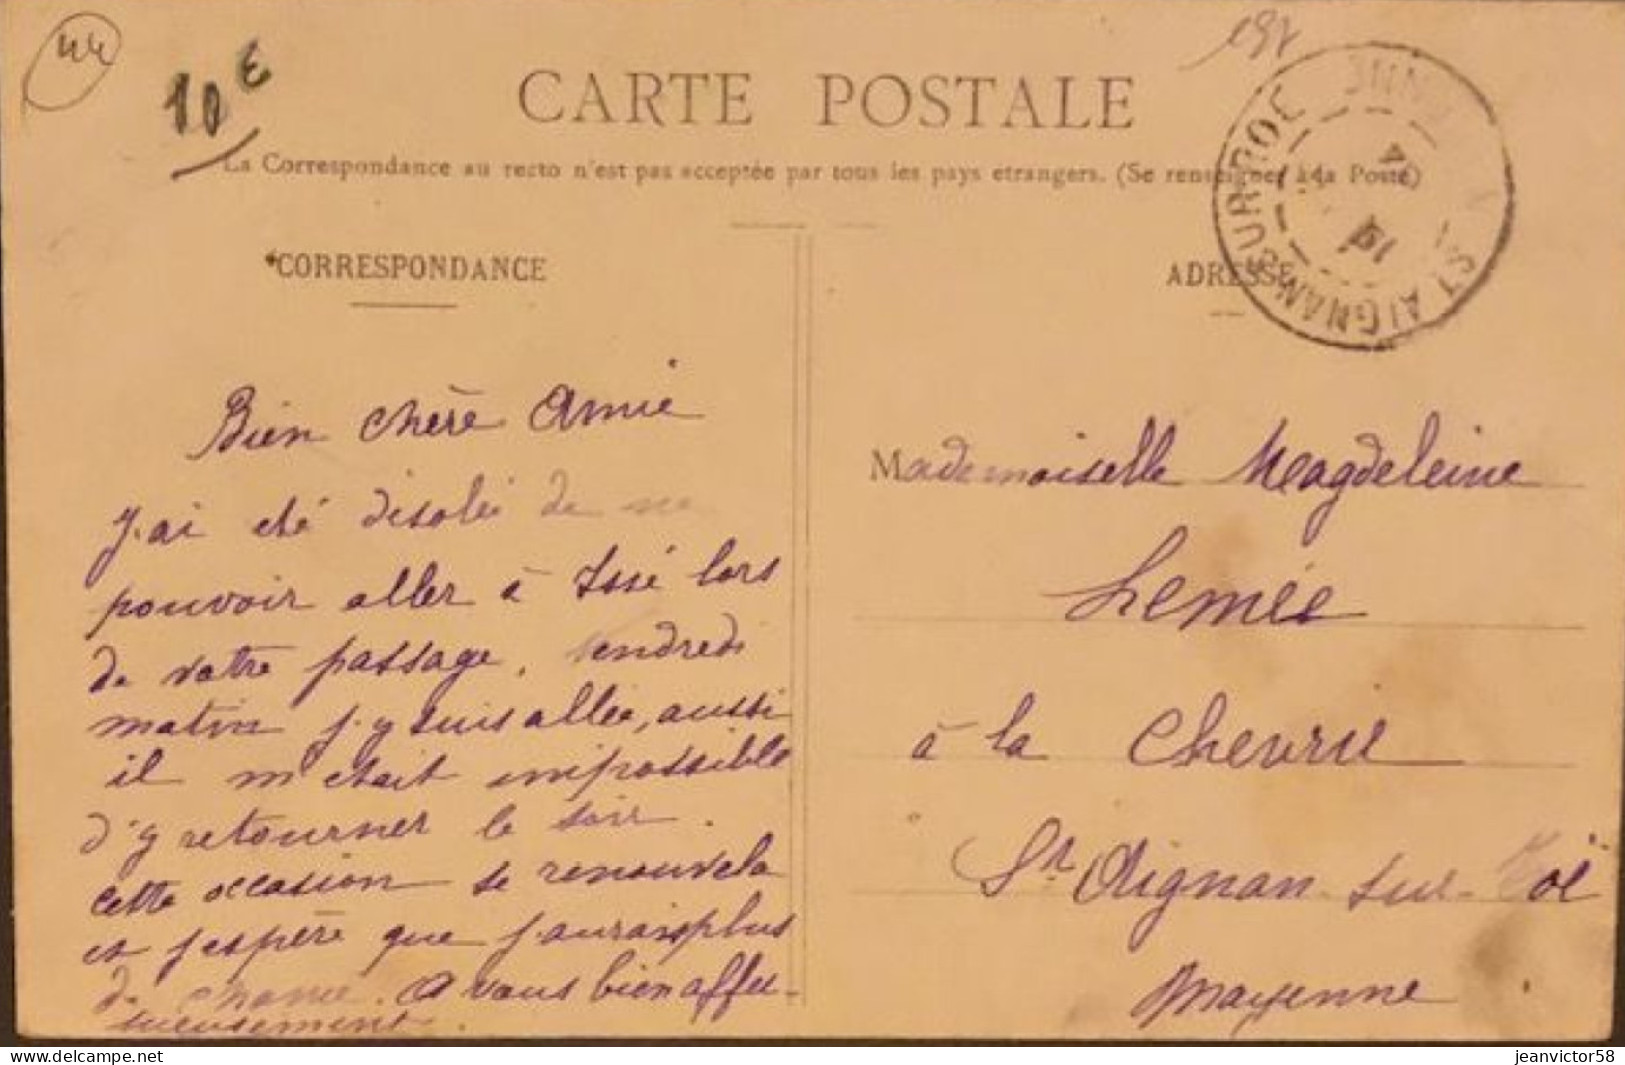 44
10 €
CARTE POSTALE
La Correspondance au recto n'est pas acceptée par tous les pays étrangers. (Se renseigner à la Poste)
CORRESPONDANCE
Bien chère Amie
J'ai été désolée de ne
pouvoir aller à Issé lors
de votre passage. Vendredi
matin j'y suis allée, aussi
il m'était impossible
d'y retourner le soir.
cette occasion se renouvela
et j'espère que j'aurais plus
de chance. A vous bien affec-
tueusement.
ADRESSE
ST AIGNAN SUR ROE
Mademoiselle Magdeleine
Lemée
à la Chevrie
St Aignan sur Roë
Mayenne
jeanvictor58
https://www.delcampe.net